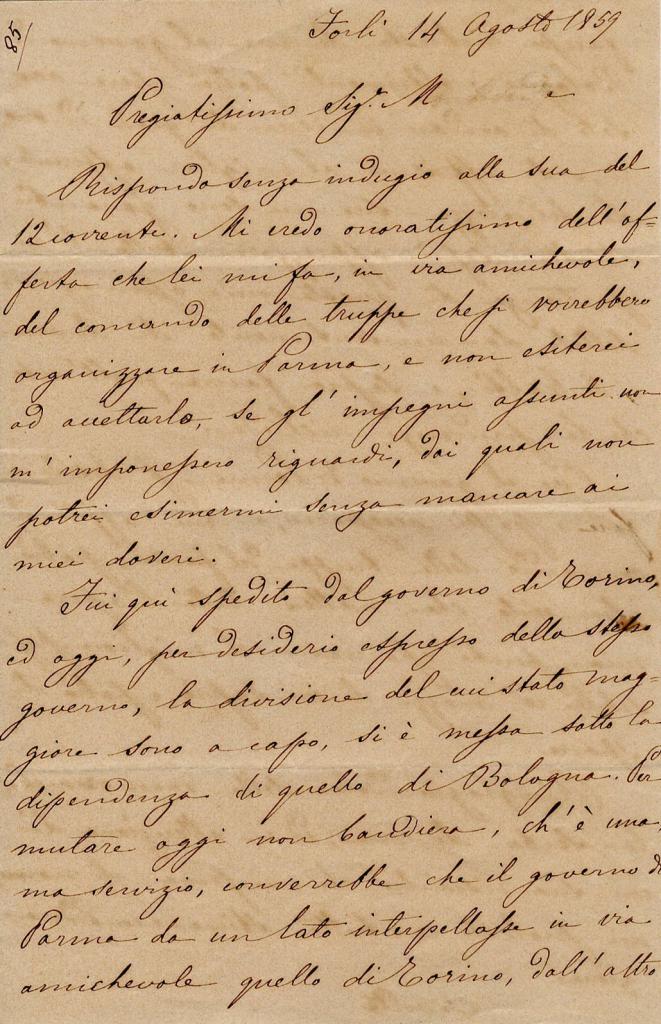 85/
Forlì 14 Agosto 1859
Pregiatissimo Sigr. M
Rispondo senza indugio alla sua del
12 corrente. Mi credo onoratissimo dell'of=
ferta che lei mi fa, in via amichevole,
del comando delle truppe che si vorrebbero
organizzare in Parma, e non esiterei
ad accettarlo, se gl'impegni assunti non
m'imponessero riguardi, dai quali non
potrei esimermi senza mancare ai
miei doveri.
Fui quì spedito dal governo di Torino,
ed oggi, per desiderio espresso dello stesso
governo, la divisione del cui stato mag=
giore sono a capo, si è messa sotto la
dipendenza di quello di Bologna. Per
mutare oggi non bandiera, ch'è una,
ma servizio, converrebbe che il governo di
Parma da un lato interpellasse in via
amichevole quello di Torino, dall'altro